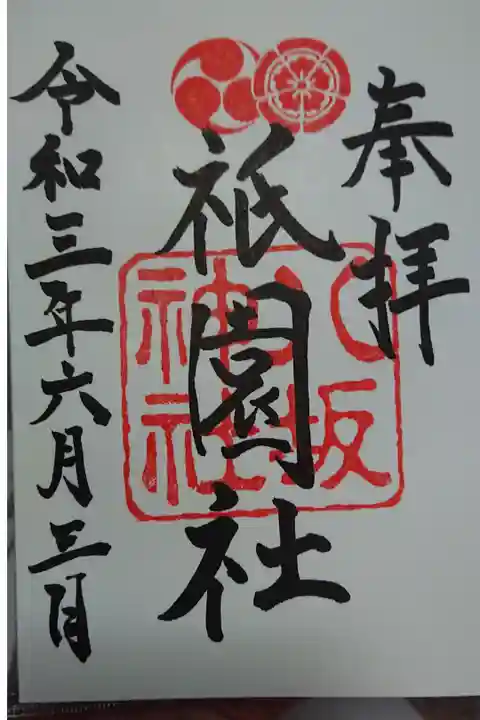 奉拝
祇園社
八坂
神社
令和三年六月三日